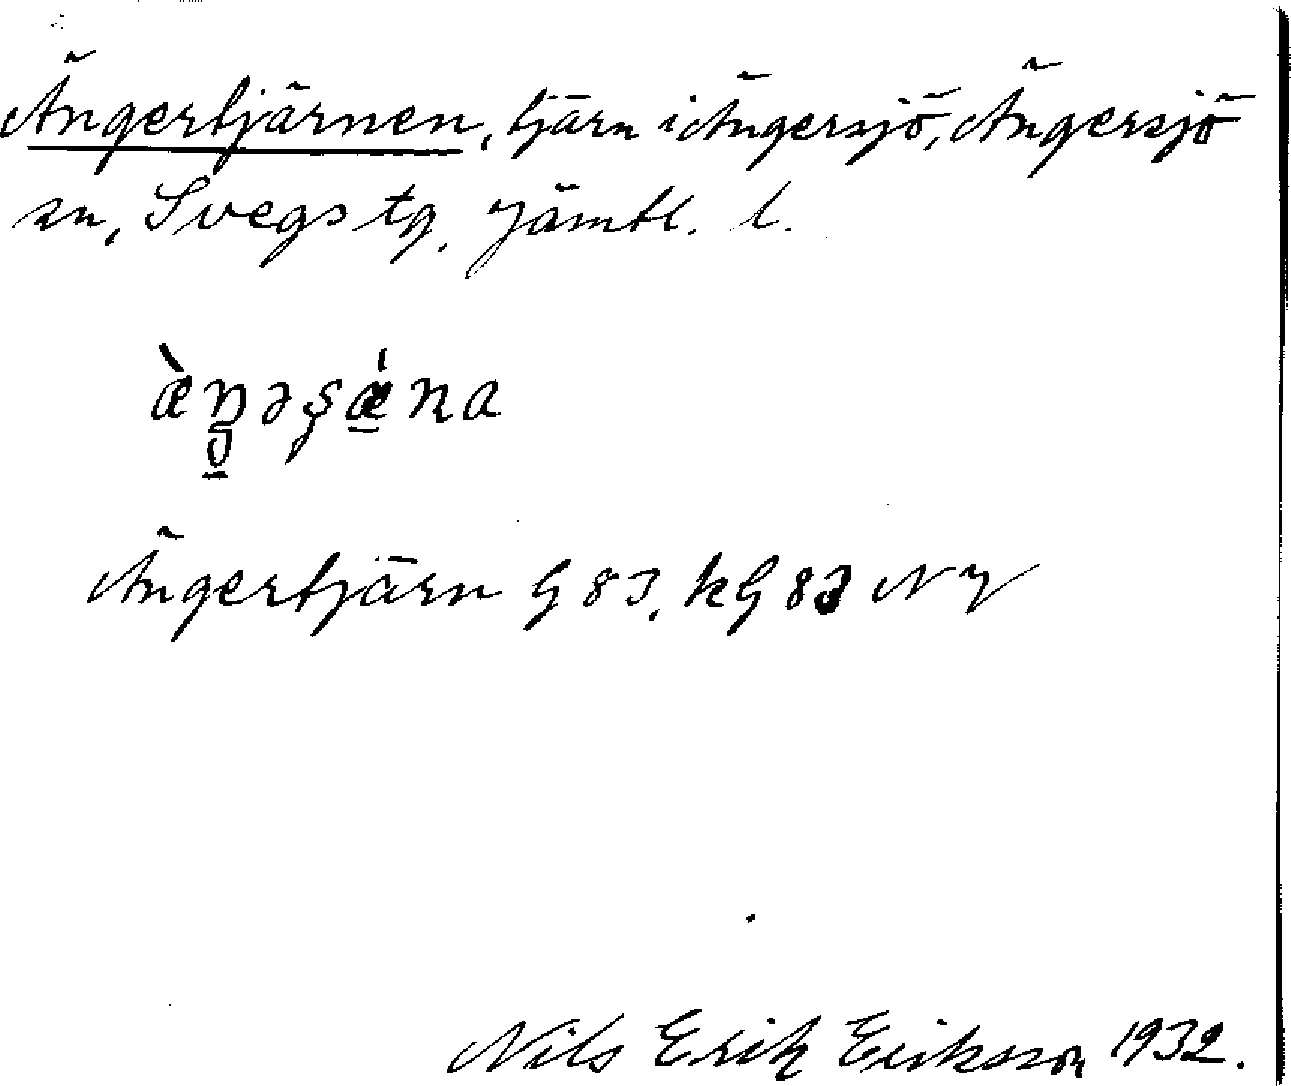 Ängertjärnen, tjärn i Ängersjö, Ängersjö
sn, Svegs tg. Jämtl. l.
Ängertjärn G 83, kG 83 NV
Nils Erik Eriksson 1932.